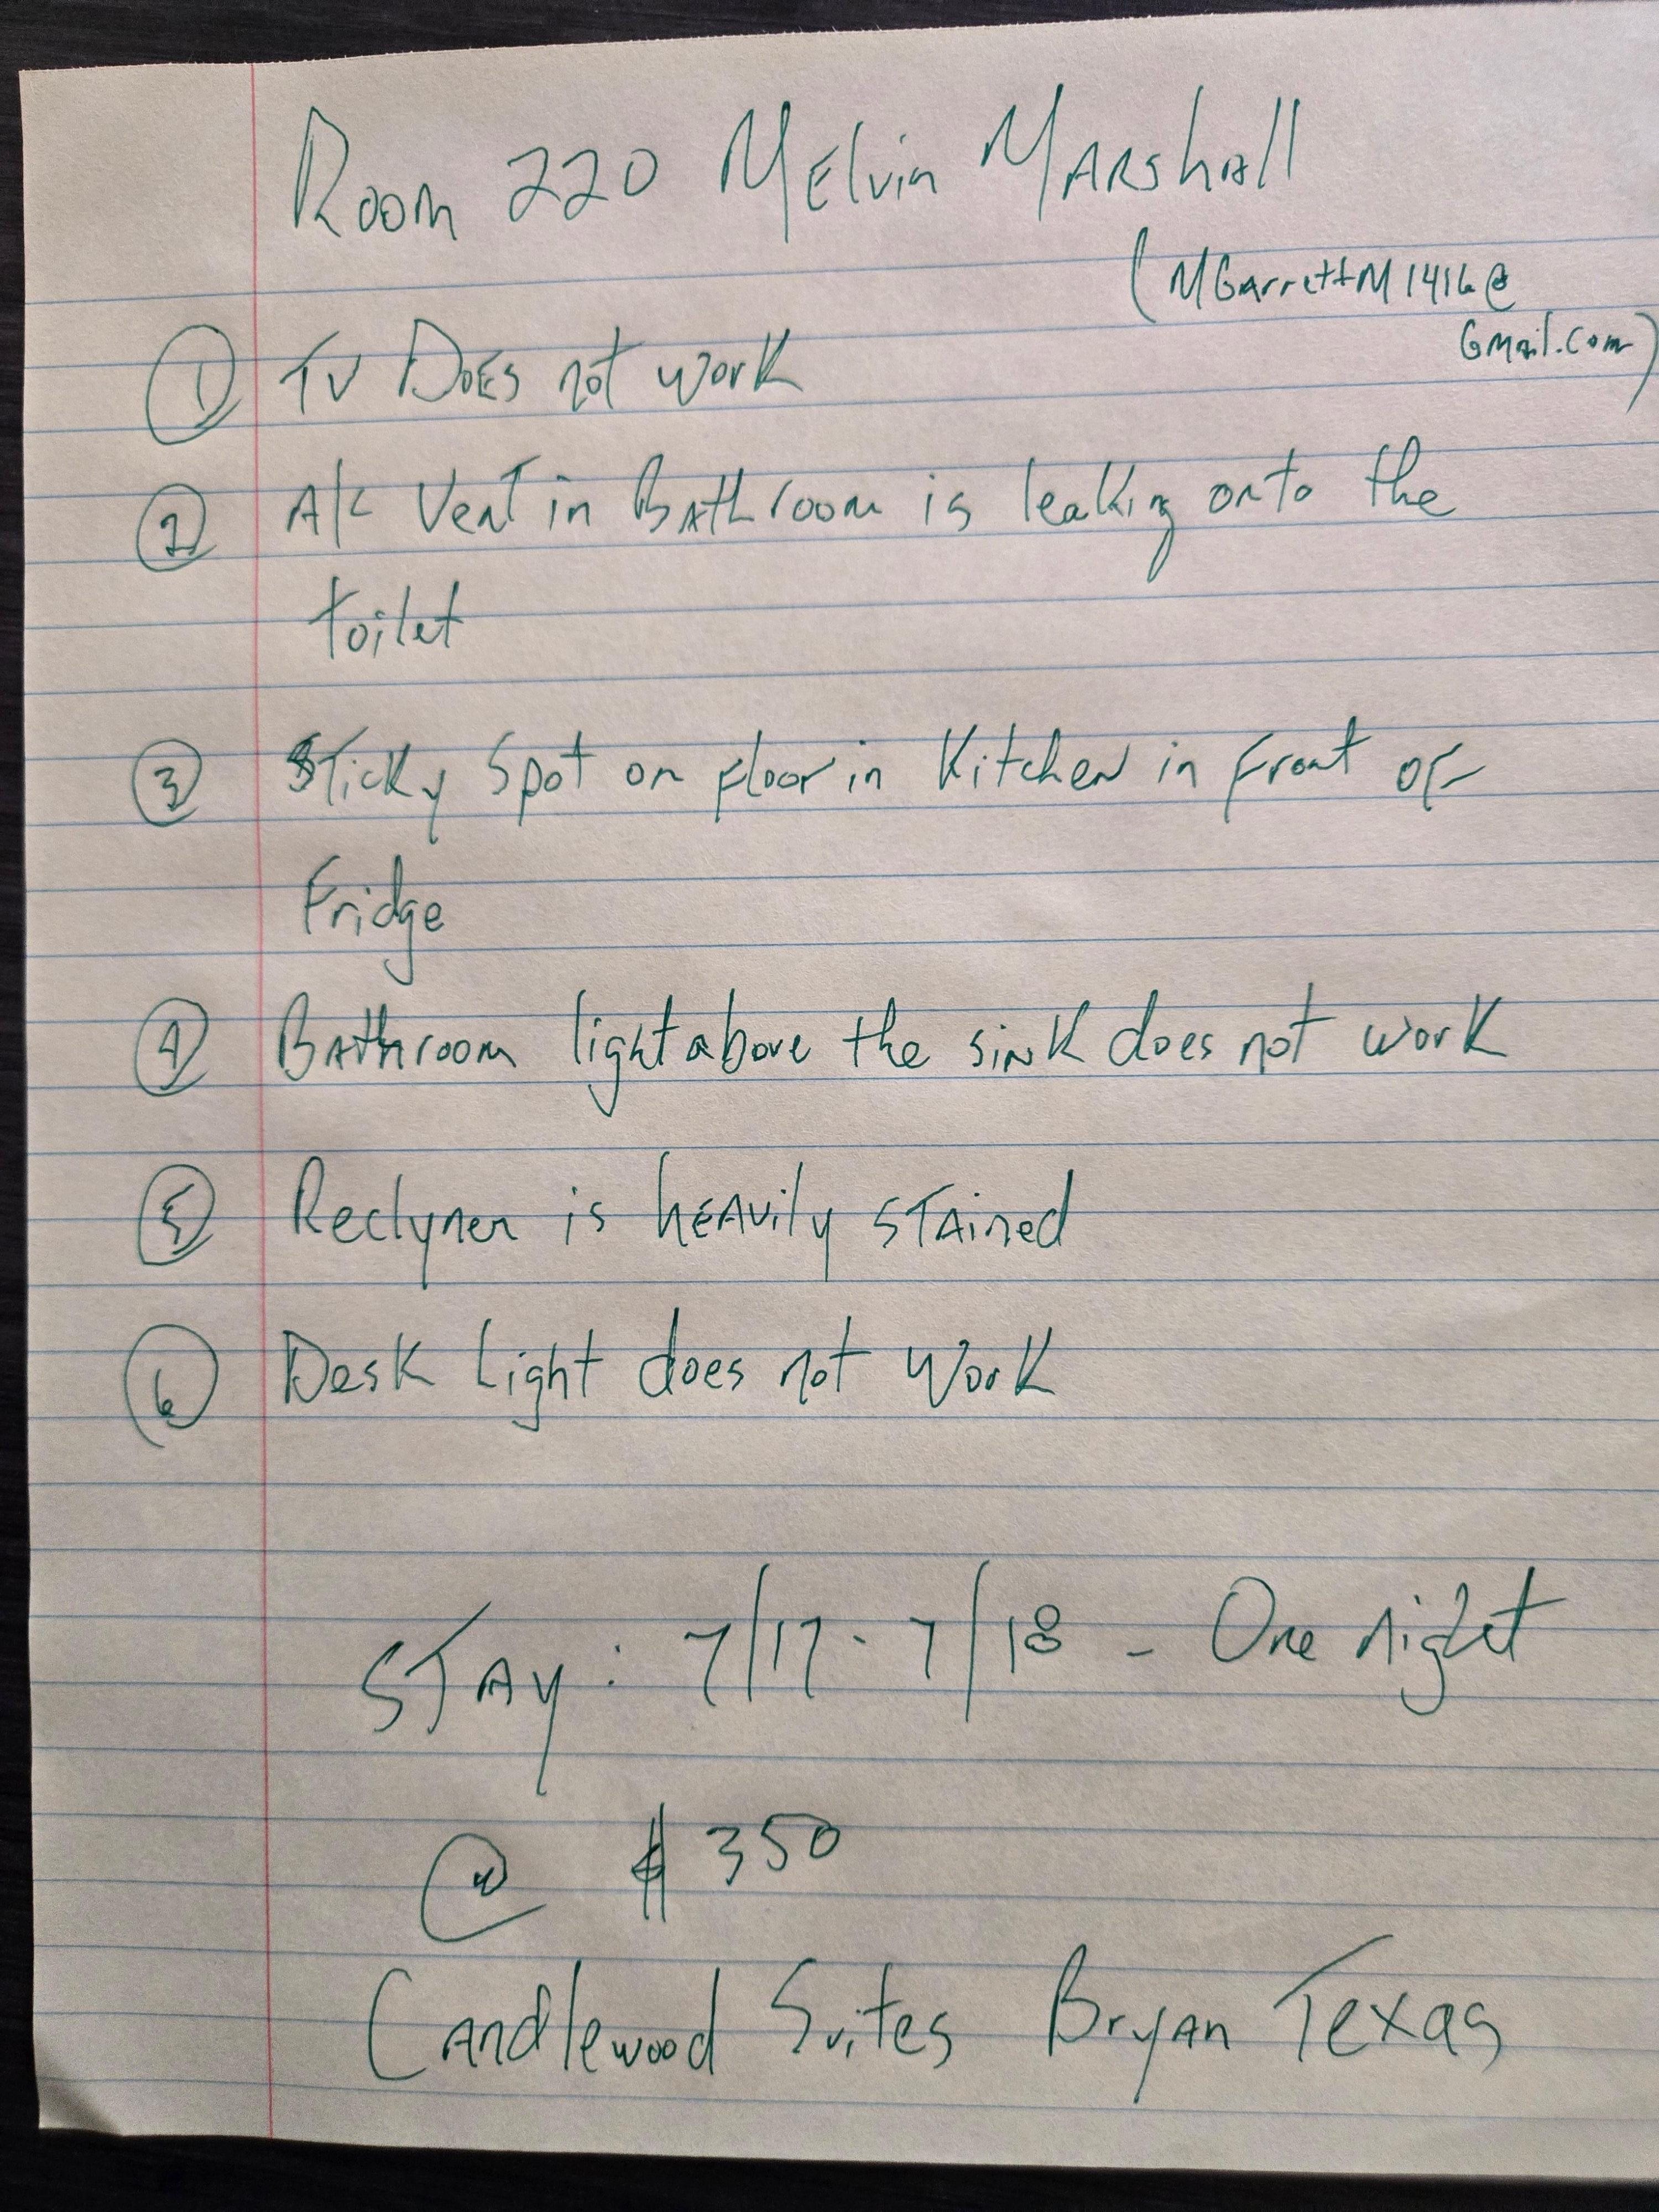 Room 220 Melvin Marshall
(MGarrettM1416@
Gmail.com)
① TV Does not work
② A/C Vent in Bathroom is leaking onto the
toilet
③ Sticky Spot on Floor in Kitchen in front of
Fridge
④ Bathroom light above the sink does not work
⑤ Reclyner is heavily stained
⑥ Desk light does not work
Stay: 7/17 - 7/18 - One night
@ $350
Candlewood Suites Bryan Texas